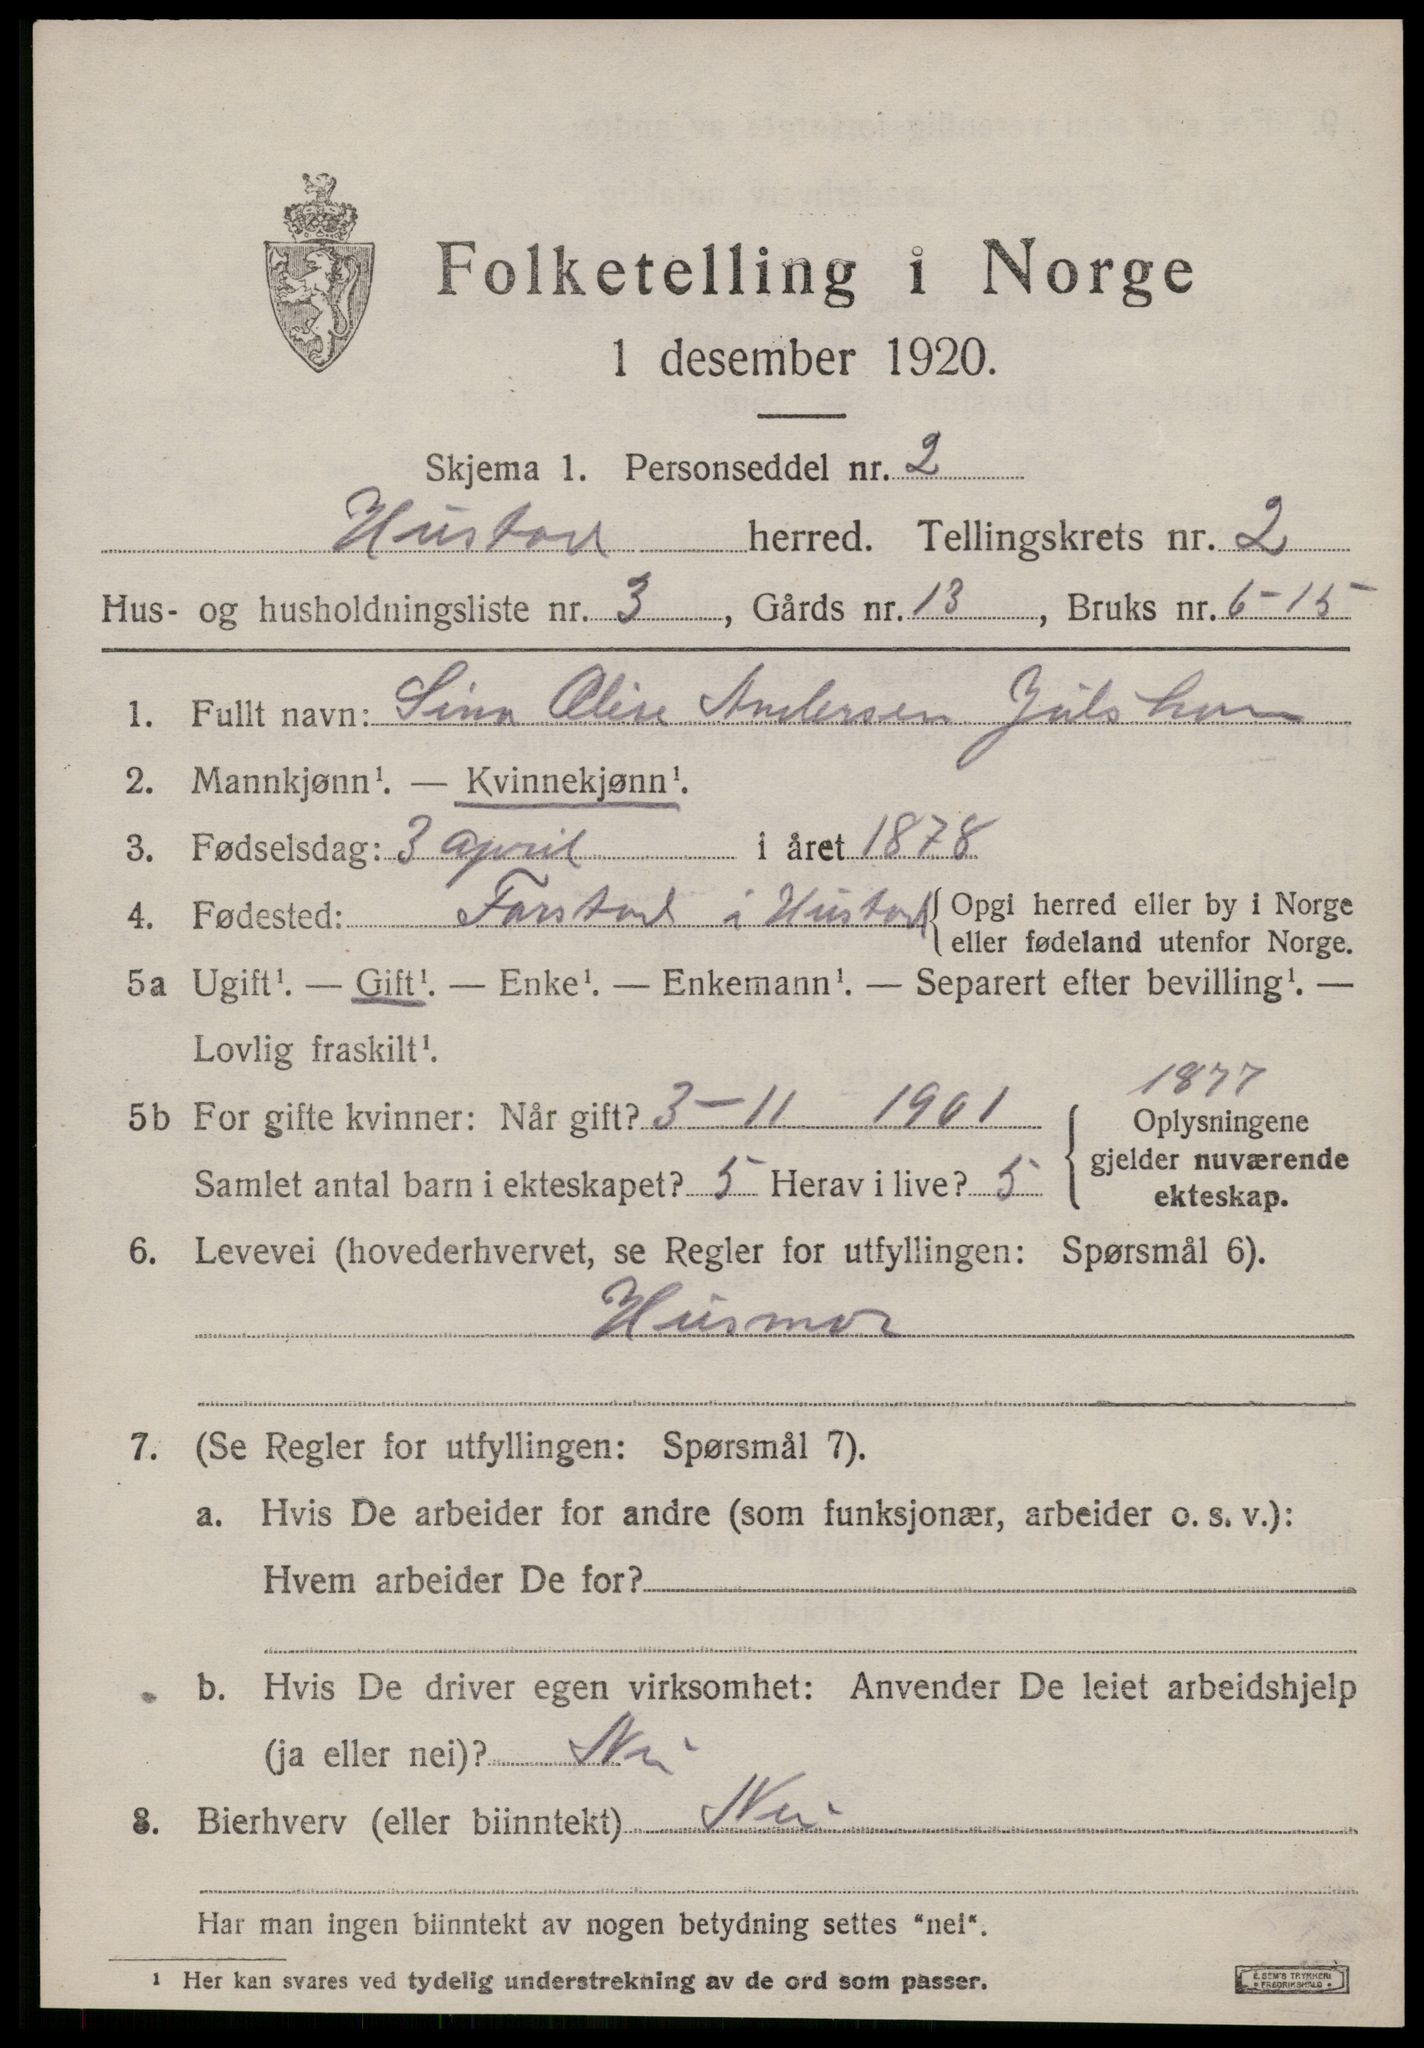 Folketelling i Norge
1 desember 1920.
Skjema 1. Personseddel nr. 2
Hustad herred. Tellingskrets nr. 2
Hus- og husholdningsliste nr. 3, Gårds nr. 13, Bruks nr. 6-15
1. Fullt navn: Sina Oline Andersen Julshavn
2. Mannkjønn¹. — Kvinnekjønn¹.
3. Fødselsdag: 3 april i året 1878
4. Fødested: Farstad i Hustad { Opgi herred eller by i Norge
eller fødeland utenfor Norge.
5a Ugift¹. — Gift¹. — Enke¹. — Enkemann¹. — Separert efter bevilling¹. —
Lovlig fraskilt¹.
1877
5b For gifte kvinner: Når gift? 3-11 1901 { Oplysningene
gjelder nuværende
Samlet antal barn i ekteskapet? 5 Herav i live? 5 ekteskap.
6. Levevei (hovederhvervet, se Regler for utfyllingen: Spørsmål 6).
Husmor
7. (Se Regler for utfyllingen: Spørsmål 7).
a. Hvis De arbeider for andre (som funksjonær, arbeider o. s. v.):
Hvem arbeider De for?
b. Hvis De driver egen virksomhet: Anvender De leiet arbeidshjelp
(ja eller nei)? Nei
8. Bierhverv (eller biinntekt) Nei
Har man ingen biinntekt av nogen betydning settes "nei".
¹ Her kan svares ved tydelig understrekning av de ord som passer.
E. SEM'S TRYKKERI
FREDRIKSHALD